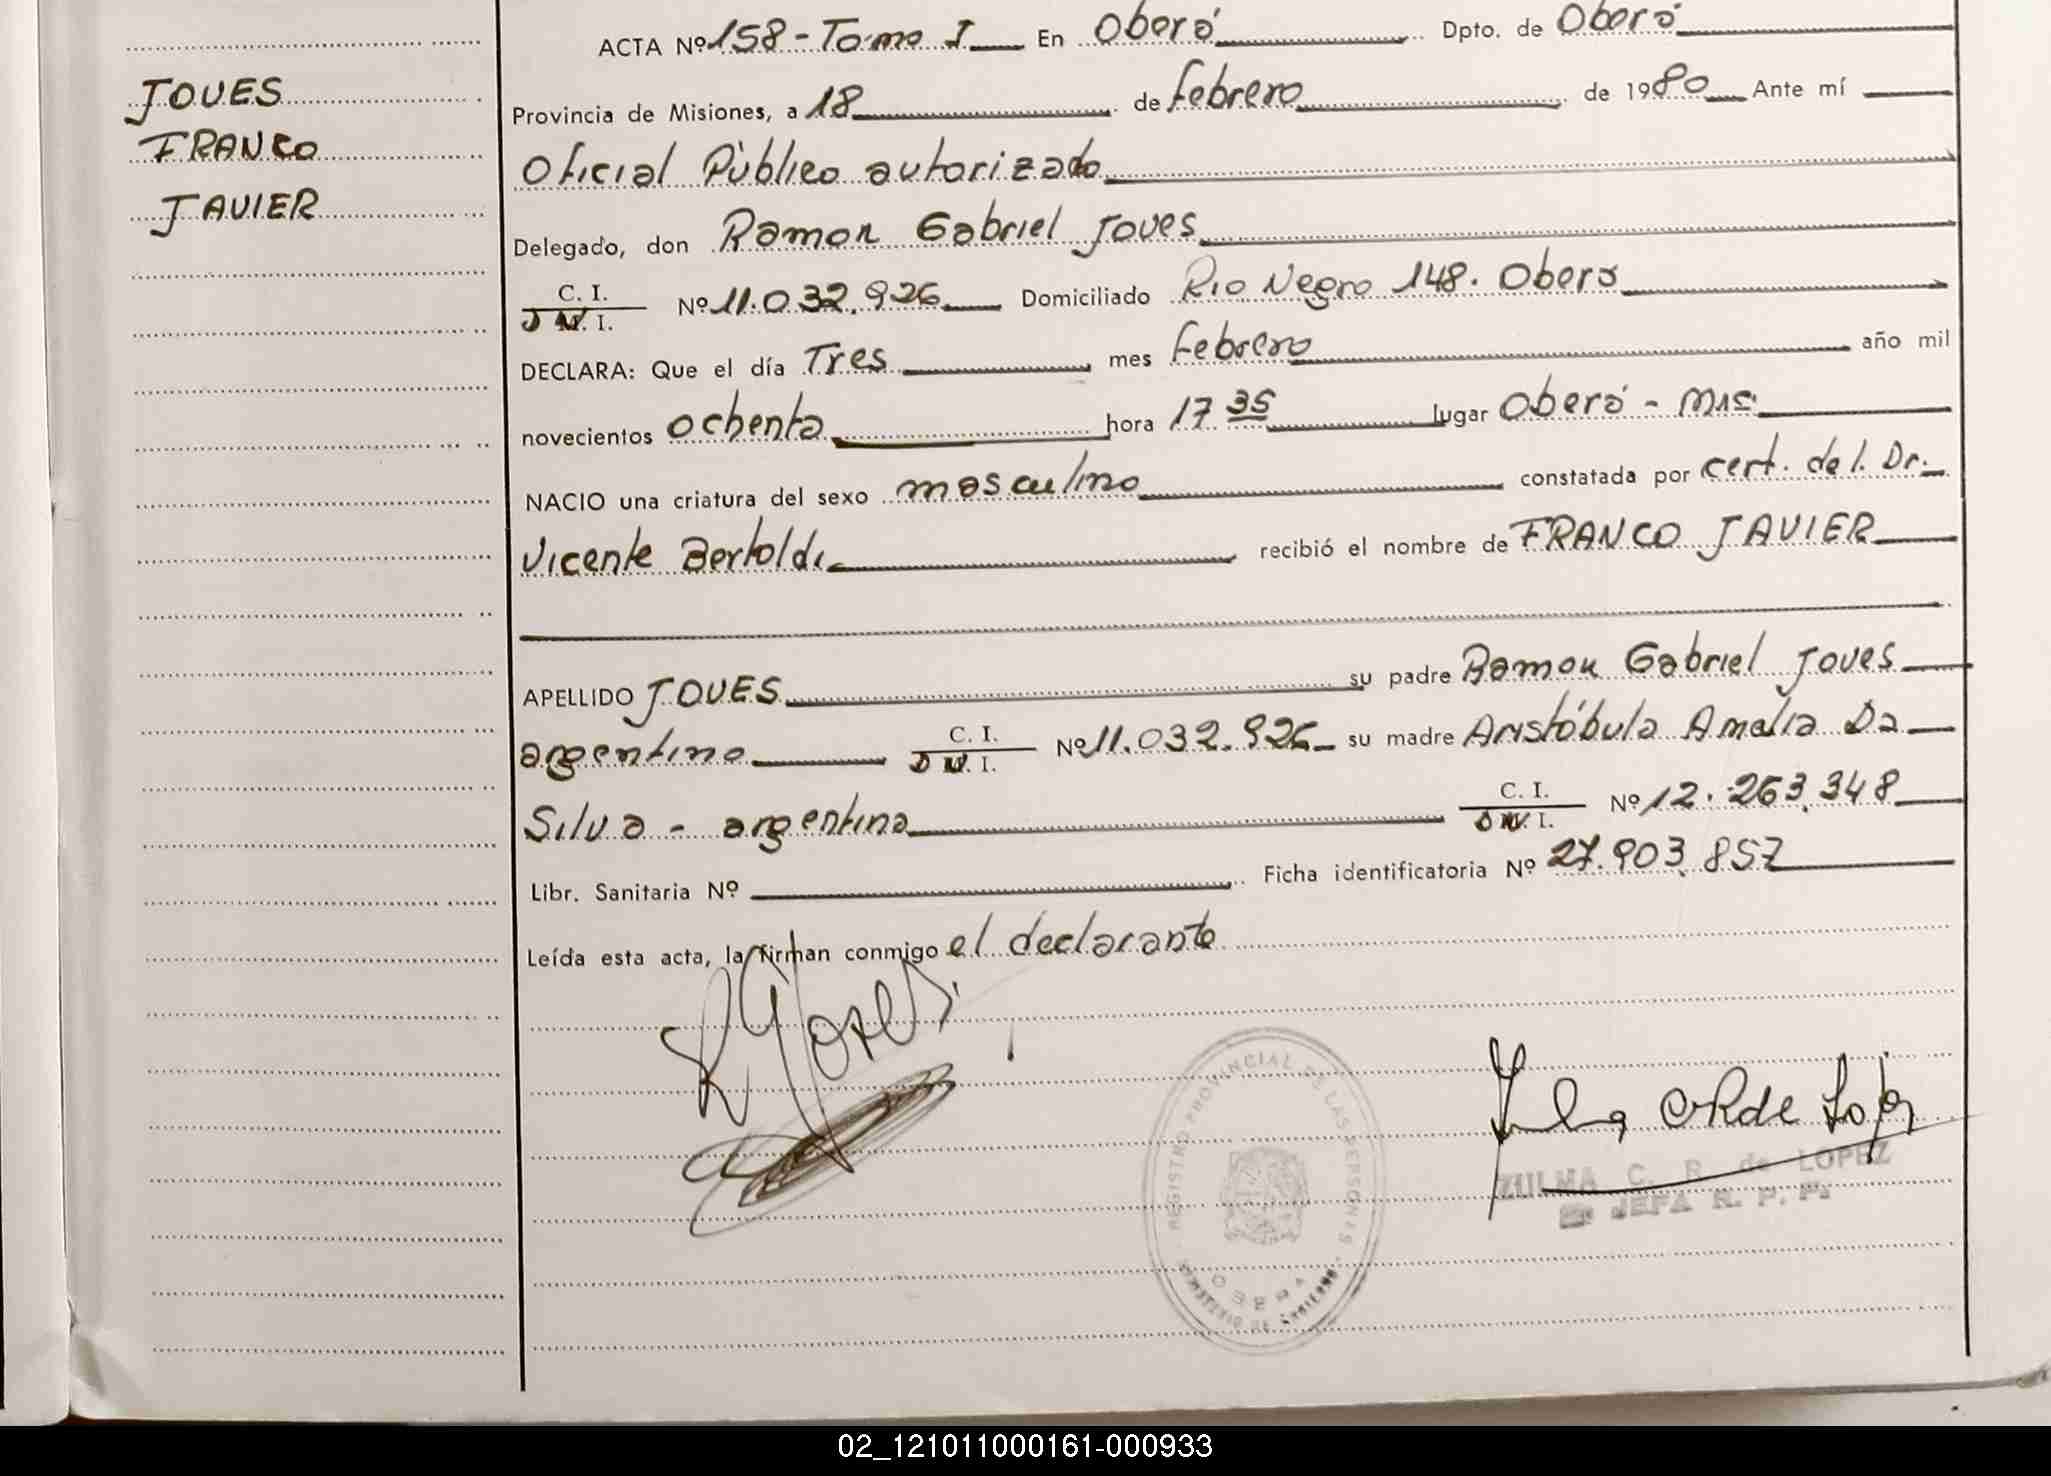 ACTA Nº 158 - Tomo I En Oberá Dpto. de Oberá
JOVES
Provincia de Misiones, a 18 de Febrero de 1980 Ante mí
FRANCO
Oficial Público autorizado
JAVIER
Delegado, don Ramon Gabriel Joves
C. I.
D N. I. Nº 11.032.926 Domiciliado Rio Negro 148. Oberá
DECLARA: Que el día Tres mes Febrero año mil
novecientos ochenta hora 17 35 lugar Oberá - Mis.
NACIO una criatura del sexo masculino constatada por cert. del. Dr.
Vicente Bertoldi recibió el nombre de FRANCO JAVIER
APELLIDO JOVES su padre Ramon Gabriel Joves
argentino C. I.
D N. I. Nº 11.032.926 su madre Aristóbula Amalia Da
Silva - argentina C. I.
D N. I. Nº 12.263.348
Libr. Sanitaria Nº Ficha identificatoria Nº 27.903.857
Leída esta acta, la firman conmigo el declarante
REGISTRO PROVINCIAL DE LAS PERSONAS
OBERA
ZULMA C. R. de LOPEZ
JEFA R. P. P.
02_121011000161-000933